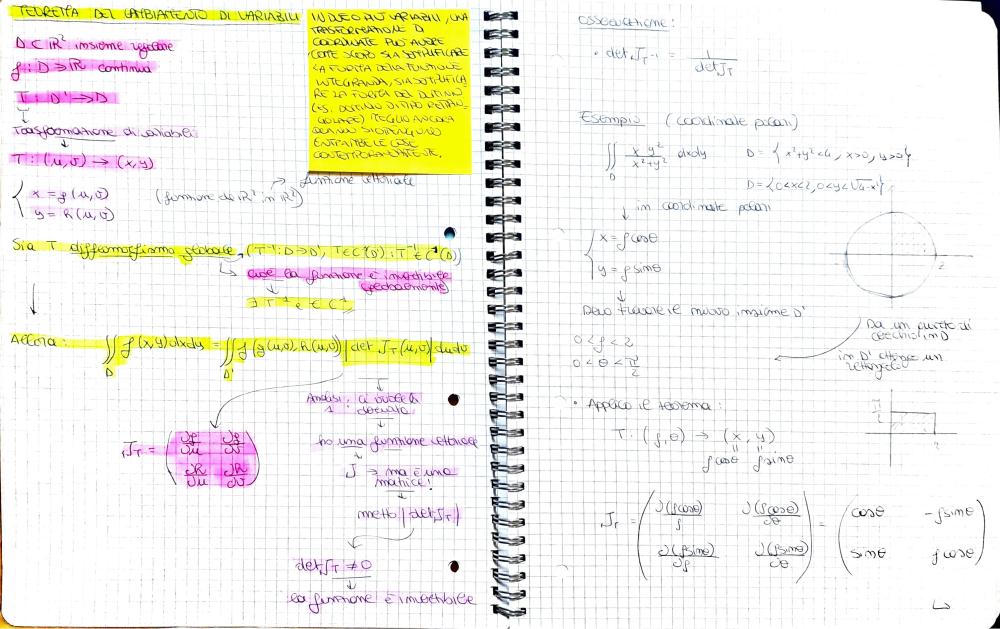 TEOREMA DEL CAMBIAMENTO DI VARIABILI
D ⊂ ℝ² insieme regolare
f : D → ℝ continua
T : D' → D
↓
Trasformazione di variabili
T : (u,v) → (x,y)
{ x = g(u,v)
y = h(u,v)
(funzione da ℝ² in ℝ²)
→ funzione vettoriale
IN DUE O PIÙ VARIABILI, UNA
TRASFORMAZIONE DI
COORDINATE PUÒ AVERE
COME SCOPO SIA SEMPLIFICARE
LA FORMA DELLA FUNZIONE
INTEGRANDA, SIA SEMPLIFICA
RE LA FORMA DEL DOMINIO
(ES. DOMINIO DI TIPO RETTAN-
GOLARE) MEGLIO ANCORA
QUANDO SI OTTENGONO
ENTRAMBE LE COSE
CONTEMPORANEAMENTE.
Sia T diffeomorfismo globale, (T⁻¹: D → D', T ∈ C¹(D'), T⁻¹ ∈ C¹(D))
↳ cioè la funzione è invertibile
globalmente
↓
∃ T⁻¹ e ∈ C¹
Allora: ∬_D f(x,y) dxdy = ∬_D' f(g(u,v), h(u,v)) |det J_T(u,v)| dudv
Analisi 1: ci vuole la
derivata
↓
ho una funzione vettoriale
↓
J → ma è una
matrice!
↓
metto |det J_T|
J_T = ( ∂g/∂u ∂g/∂v
∂h/∂u ∂h/∂v )
det J_T ≠ 0
↓
la funzione è invertibile
Osservazione:
• det J_T⁻¹ = 1/det J_T
Esempio (coordinate polari)
∬_D xy²/(x²+y²) dxdy D = { x²+y²<4, x>0, y>0 }
D = { 0<x<2, 0<y<√(4-x²) }
↓ in coordinate polari
{ x = ρcosθ
y = ρsinθ
2
↓
Devo trovare il nuovo insieme D'
0 < ρ < 2
0 < θ < π/2
Da un quarto di
cerchio in D
in D' ottengo un
rettangolo
π/2
2
• Applico il teorema:
T : (ρ,θ) → (x, y)
ρcosθ ρsinθ
J_T = ( ∂(ρcosθ)/∂ρ ∂(ρcosθ)/∂θ = ( cosθ -ρsinθ
∂(ρsinθ)/∂ρ ∂(ρsinθ)/∂θ ) sinθ ρcosθ )
↳